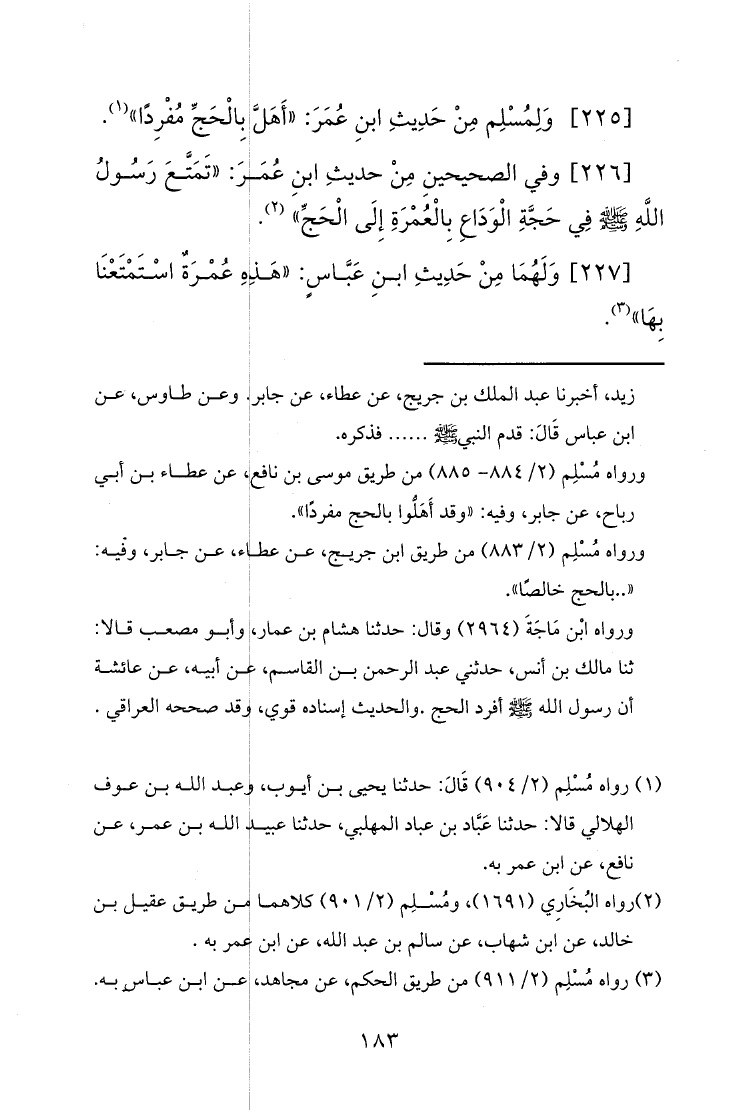 [٢٢٥] وَلِمُسْلِمٍ مِنْ حَدِيثِ ابنِ عُمَرَ: «أَهَلَّ بِالْحَجِّ مُفْرِدًا»(١).
[٢٢٦] وفي الصحيحينِ مِنْ حديثِ ابنِ عُمَرَ: «تَمَتَّعَ رَسُولُ
اللَّهِ ﷺ فِي حَجَّةِ الْوَدَاعِ بِالْعُمْرَةِ إِلَى الْحَجِّ» (٢).
[٢٢٧] وَلَهُمَا مِنْ حَدِيثِ ابنِ عَبَّاسٍ: «هَذِهِ عُمْرَةٌ اسْتَمْتَعْنَا
بِهَا»(٣).
زيد، أخبرنا عبد الملك بن جريج، عن عطاء، عن جابر. وعن طاوس، عن
ابن عباس قَالَ: قدم النبي ﷺ ...... فذكره.
ورواه مُسْلِم (٢/ ٨٨٤- ٨٨٥) من طريق موسى بن نافع، عن عطاء بن أبي
رباح، عن جابر، وفيه: «وقد أَهَلُّوا بالحج مفردًا».
ورواه مُسْلِم (٢/ ٨٨٣) من طريق ابن جريج، عن عطاء، عن جابر، وفيه:
«..بالحج خالصًا».
ورواه ابْن مَاجَةَ (٢٩٦٤) وقال: حدثنا هشام بن عمار، وأبو مصعب قالا:
ثنا مالك بن أنس، حدثني عبد الرحمن بن القاسم، عن أبيه، عن عائشة
أن رسول الله ﷺ أفرد الحج .والحديث إسناده قوي، وقد صححه العراقي .
(١) رواه مُسْلِم (٢/ ٩٠٤) قَالَ: حدثنا يحيى بن أيوب، وعبد الله بن عوف
الهلالي قالا: حدثنا عَبَّاد بن عباد المهلبي، حدثنا عبيد الله بن عمر، عن
نافع، عن ابن عمر به.
(٢)رواه البُخَاري (١٦٩١)، ومُسْلِم (٢/ ٩٠١) كلاهما من طريق عقيل بن
خالد، عن ابن شهاب، عن سالم بن عبد الله، عن ابن عمر به .
(٣) رواه مُسْلِم (٢/ ٩١١) من طريق الحكم، عن مجاهد، عن ابن عباس به.
١٨٣